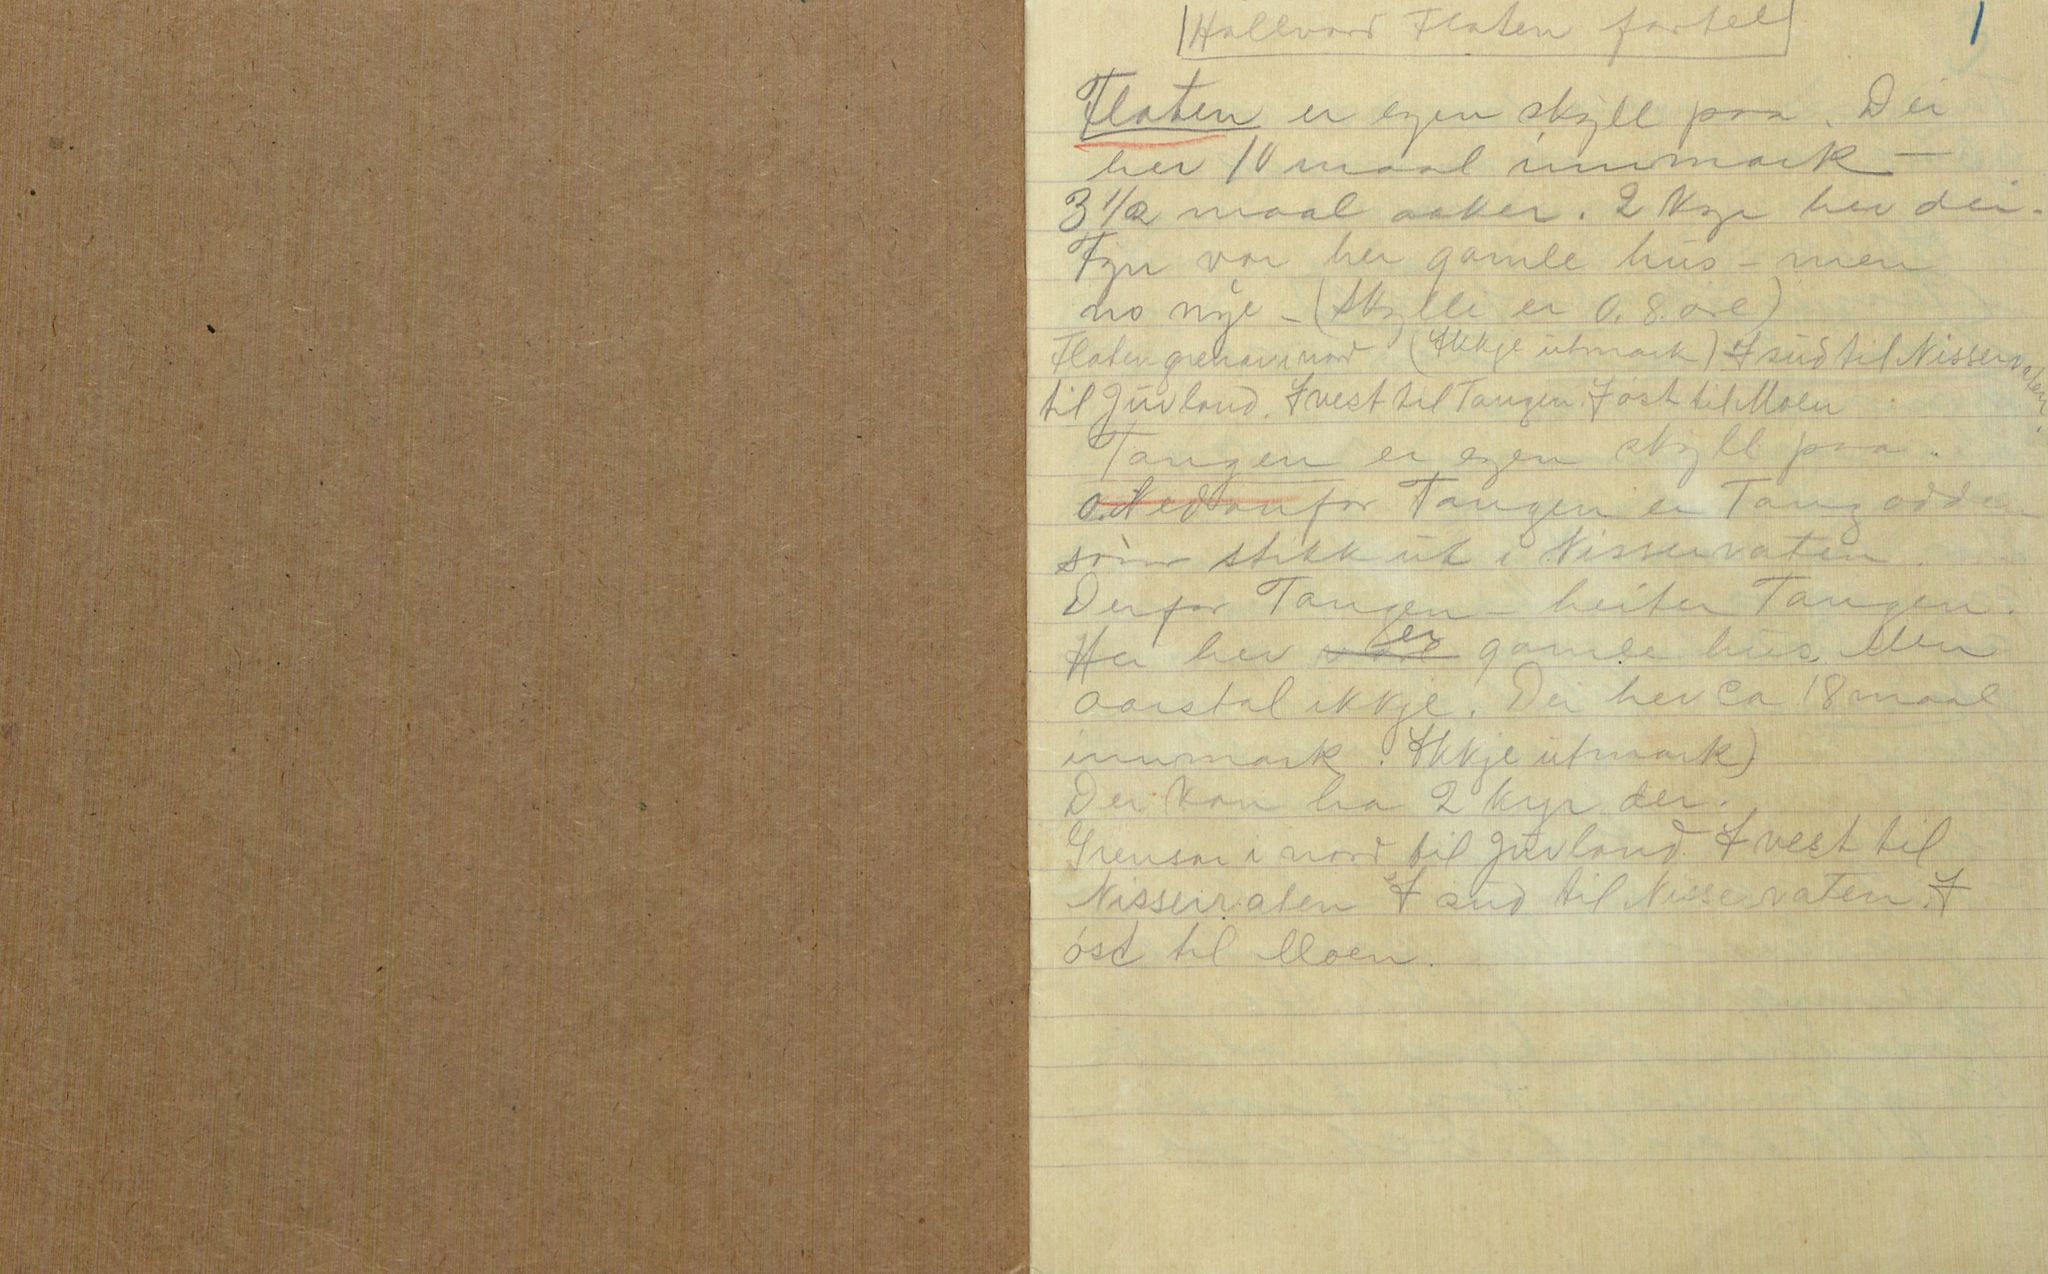 Hallvard Flaten fortel
1
Flaten er egen skyll paa. Dei
hev 10 maal innmark —
3 1/2 maal aaker. 2 kyr hev dei.
Fyrr var her gamle hus - men
no nye - (Skylli er 0.8 øre)
Flaten grensar i nord (Ikkje utmark) I sud til Nisservaten.
til Juvland. I vest til Tangen. I øst til Moen
Tangen er egen skyll paa.
Nedanfor Tangen er Tangodden
som stikk ut i Nisservaten.
Derfor Tangen - heiter Tangen.
Her er gamle hus. Men
aarstal ikkje. Dei hev ca 18 maal
innmark. Ikkje utmark)
Dei kan ha 2 kyr der.
Grensar i nord til Juvland. I vest til
Nisservaten I sud til Nisservaten. I
øst til Moen.